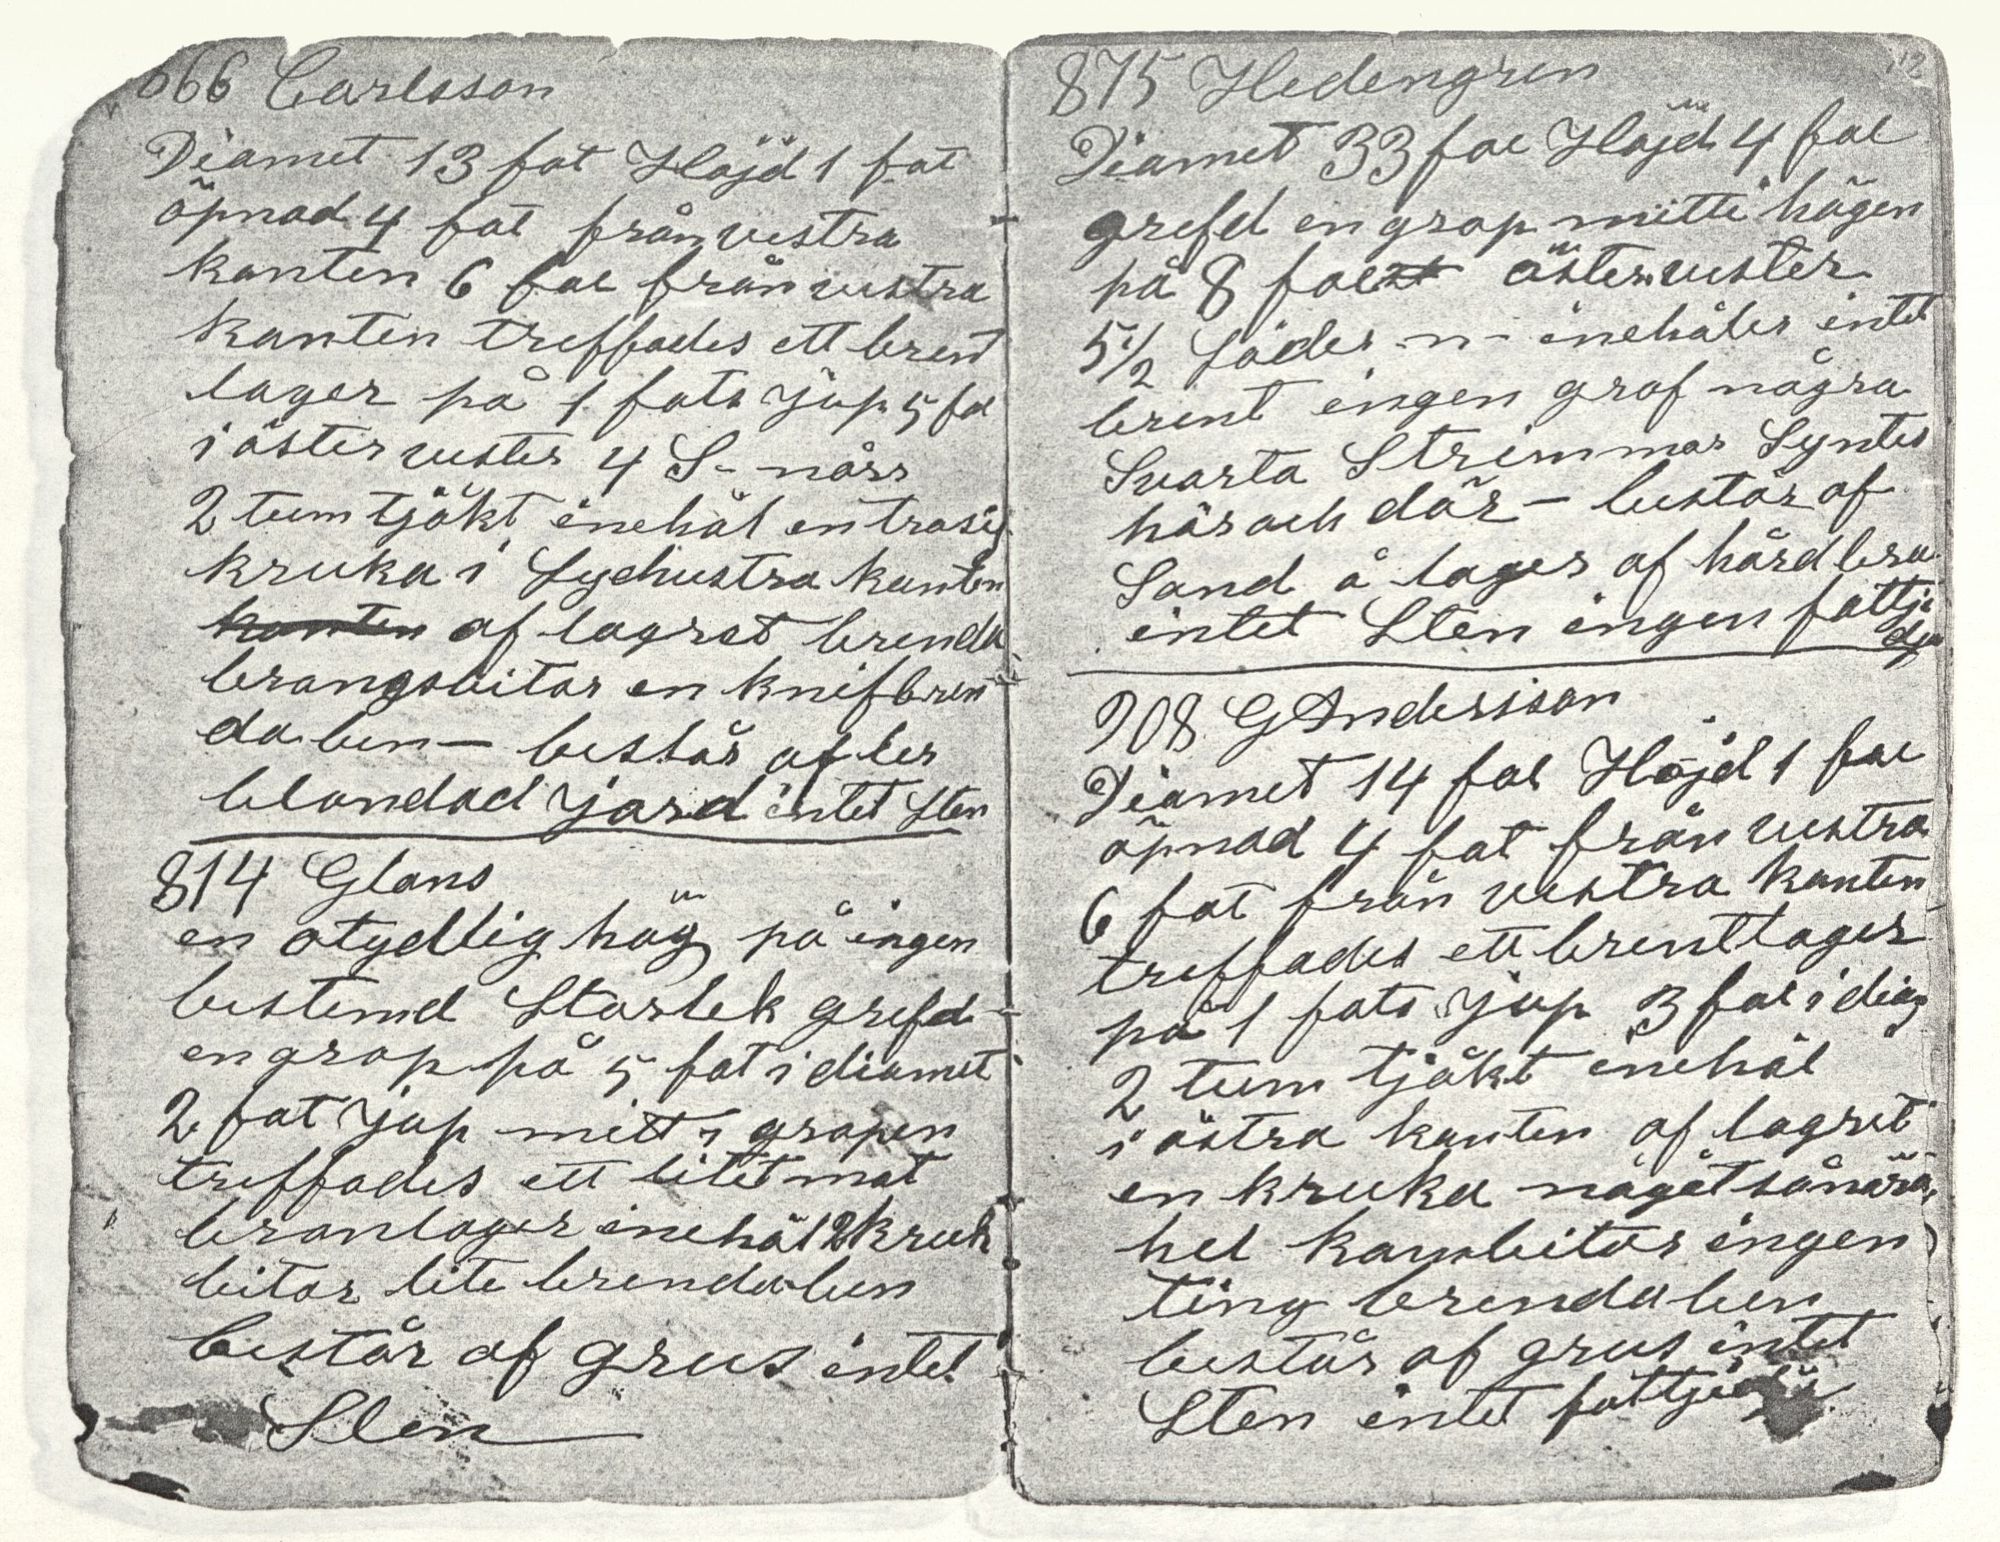 666 Carlsson
Diamet 13 fot Höjd 1 fot
öpnad 4 fot från vestra
kanten 6 fot från vestra
kanten treffades ett brent
lager på 1 fots jup 5 fot
i öster vester 4 S - norr
2 tum tjökt inehöl en trasig
kruka i Sydvustra kanten
kanten af lagret brenda
brangsbitar en knif bren
da ben — består af ler
blandad jord intet Sten
814 Glans
en otydlig hög på ingen
bestemd Storlek grefd
en grop på 5 fot i diamet
2 fot jup mitt i gropen
treffades ett litet mat
branlager inehöl 2 kruk
bitar lite brenda ben
består af grus intet
Sten
875 Hedengren
Diamet 33 fot Höjd 4 fot
grefd en grop mitt i högen
på 8 fot öster vester
5 1/2 Söder - n - inehöler intet
brent ingen grof några
Svarta Strimmor Syntes
här och där — består af
Sand å lager af hård lera
intet Sten ingen fottje
908 G Andersson
Diamet 14 fot Höjd 1 fot
öpnad 4 fot från vestra
6 fot från vestra kanten
treffades ett brent lager
på 1 fots jup 3 fot i diam
2 tum tjökt inehöl
i östra kanten af lagret
en kruka något sånära
hel kambitar ingen
ting brenda ben
består af grus intet
Sten intet